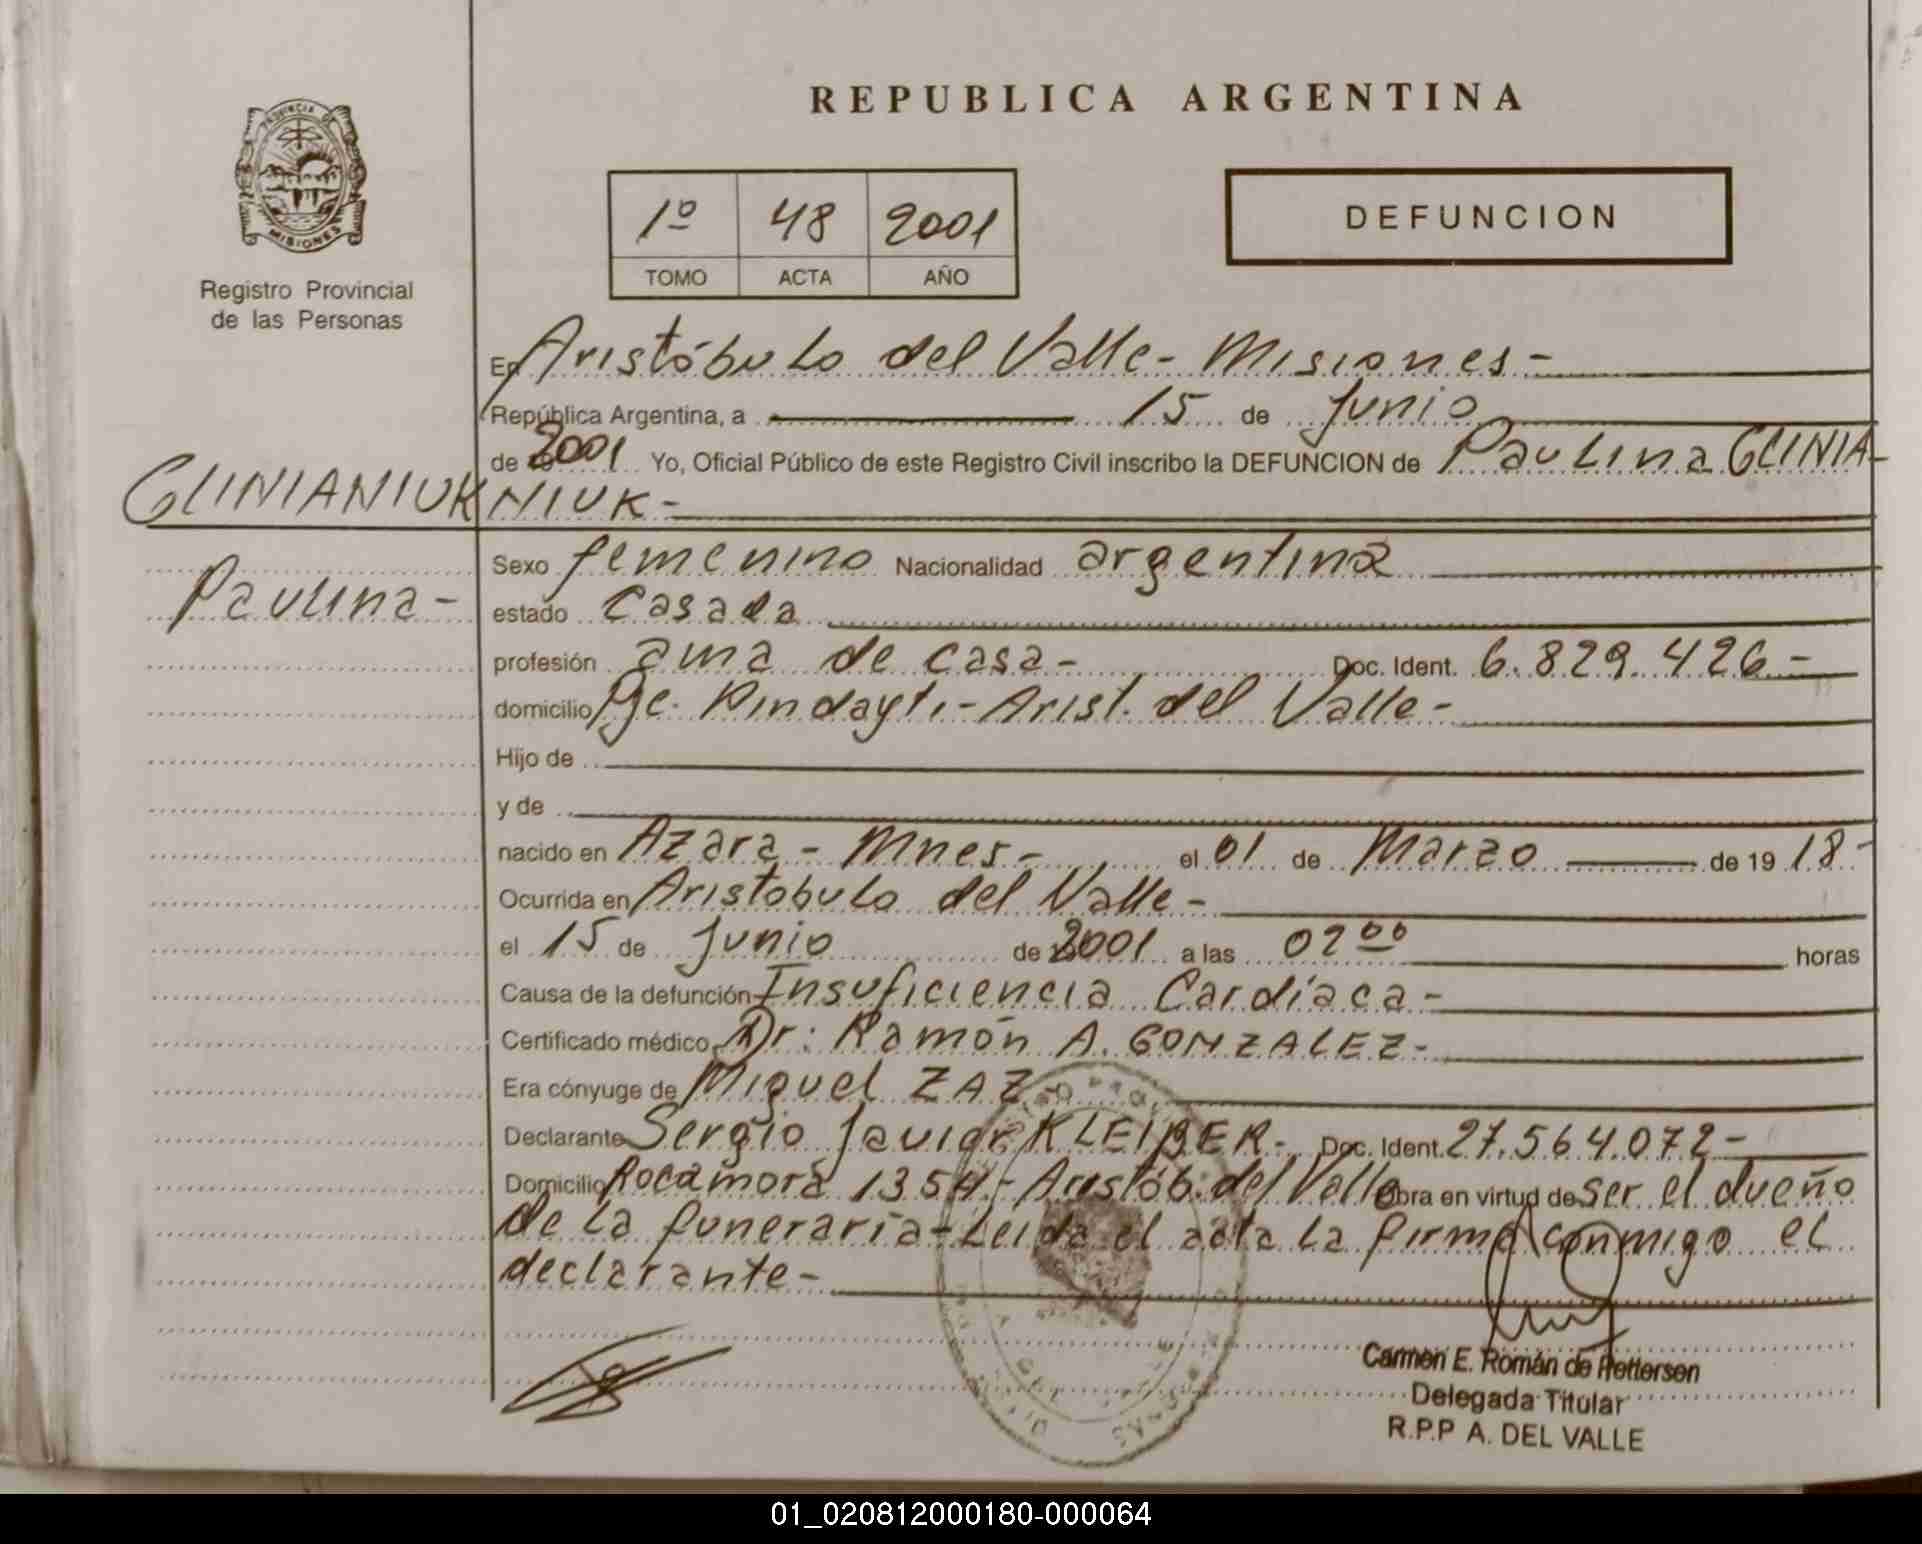 REPUBLICA ARGENTINA
PROVINCIA DE
MISIONES
Registro Provincial
de las Personas
1º 48 2001
TOMO ACTA AÑO
DEFUNCION
En Aristóbulo del Valle - Misiones -
República Argentina, a 15 de Junio
de 2001 Yo, Oficial Público de este Registro Civil inscribo la DEFUNCION de Paulina GLINIA-
NIUK -
GLINIANIUK
Paulina -
Sexo femenino Nacionalidad argentina
estado Casada
profesión ama de casa - Doc. Ident. 6.829.426 -
domicilio Pje. Pindayti - Arist. del Valle -
Hijo de
y de
nacido en Azara - Mnes - el 01 de Marzo de 19 18 -
Ocurrida en Aristobulo del Valle -
el 15 de Junio de 2001 a las 02 00 horas
Causa de la defunción Insuficiencia Cardíaca -
Certificado médico Dr: Ramón A. GONZALEZ -
Era cónyuge de Miguel ZAZ -
Declarante Sergio Javier KLEIBER - Doc. Ident. 27.564.072 -
Domicilio Rocamora 1354 - Aristób. del Valle Obra en virtud de ser el dueño
de la funeraria - Leida el acta la firma conmigo el
declarante -
Carmen E. Román de Pettersen
Delegada Titular
R.P.P A. DEL VALLE
01_020812000180-000064